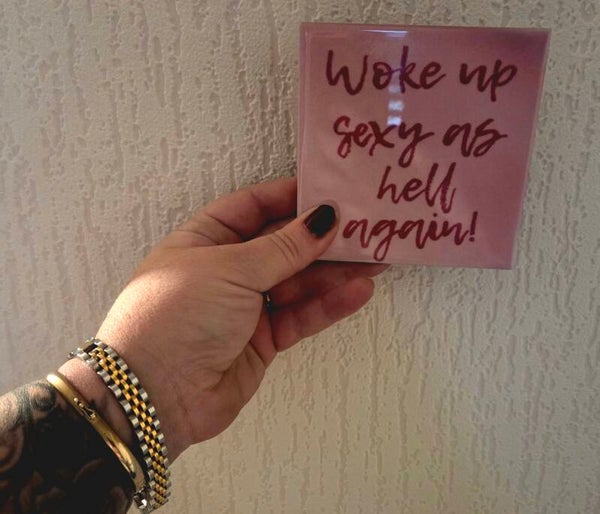 Woke up
sexy as
hell
again!